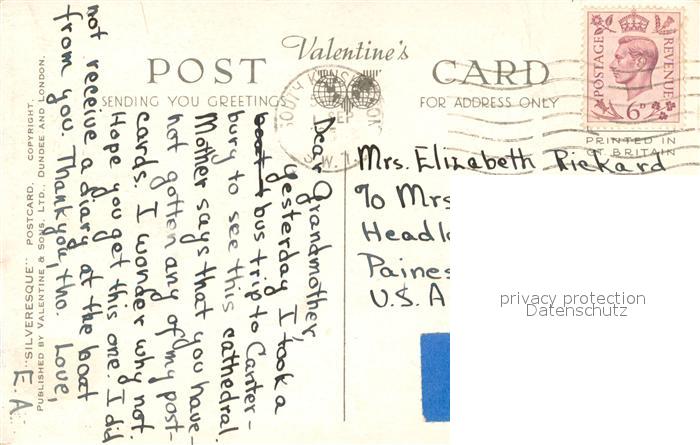 Valentine's
POST CARD
SENDING YOU GREETINGS
FOR ADDRESS ONLY
POSTAGE REVENUE
6D
PRINTED IN
GT. BRITAIN
SEP
S.W.7
Dear Grandmother,
Yesterday I took a
boat bus trip to Canter-
bury to see this cathedral.
Mother says that you have
not gotten any of my post-
cards. I wonder why not.
Hope you get this one. I did
not receive a diary at the boat
from you. Thank you, tho. Love,
E.A.
Mrs. Elizabeth Rickard
% Mrs
Headl
Paines
U.S.A
privacy protection
Datenschutz
"SILVERESQUE" POSTCARD. COPYRIGHT.
PUBLISHED BY VALENTINE & SONS, LTD., DUNDEE AND LONDON.